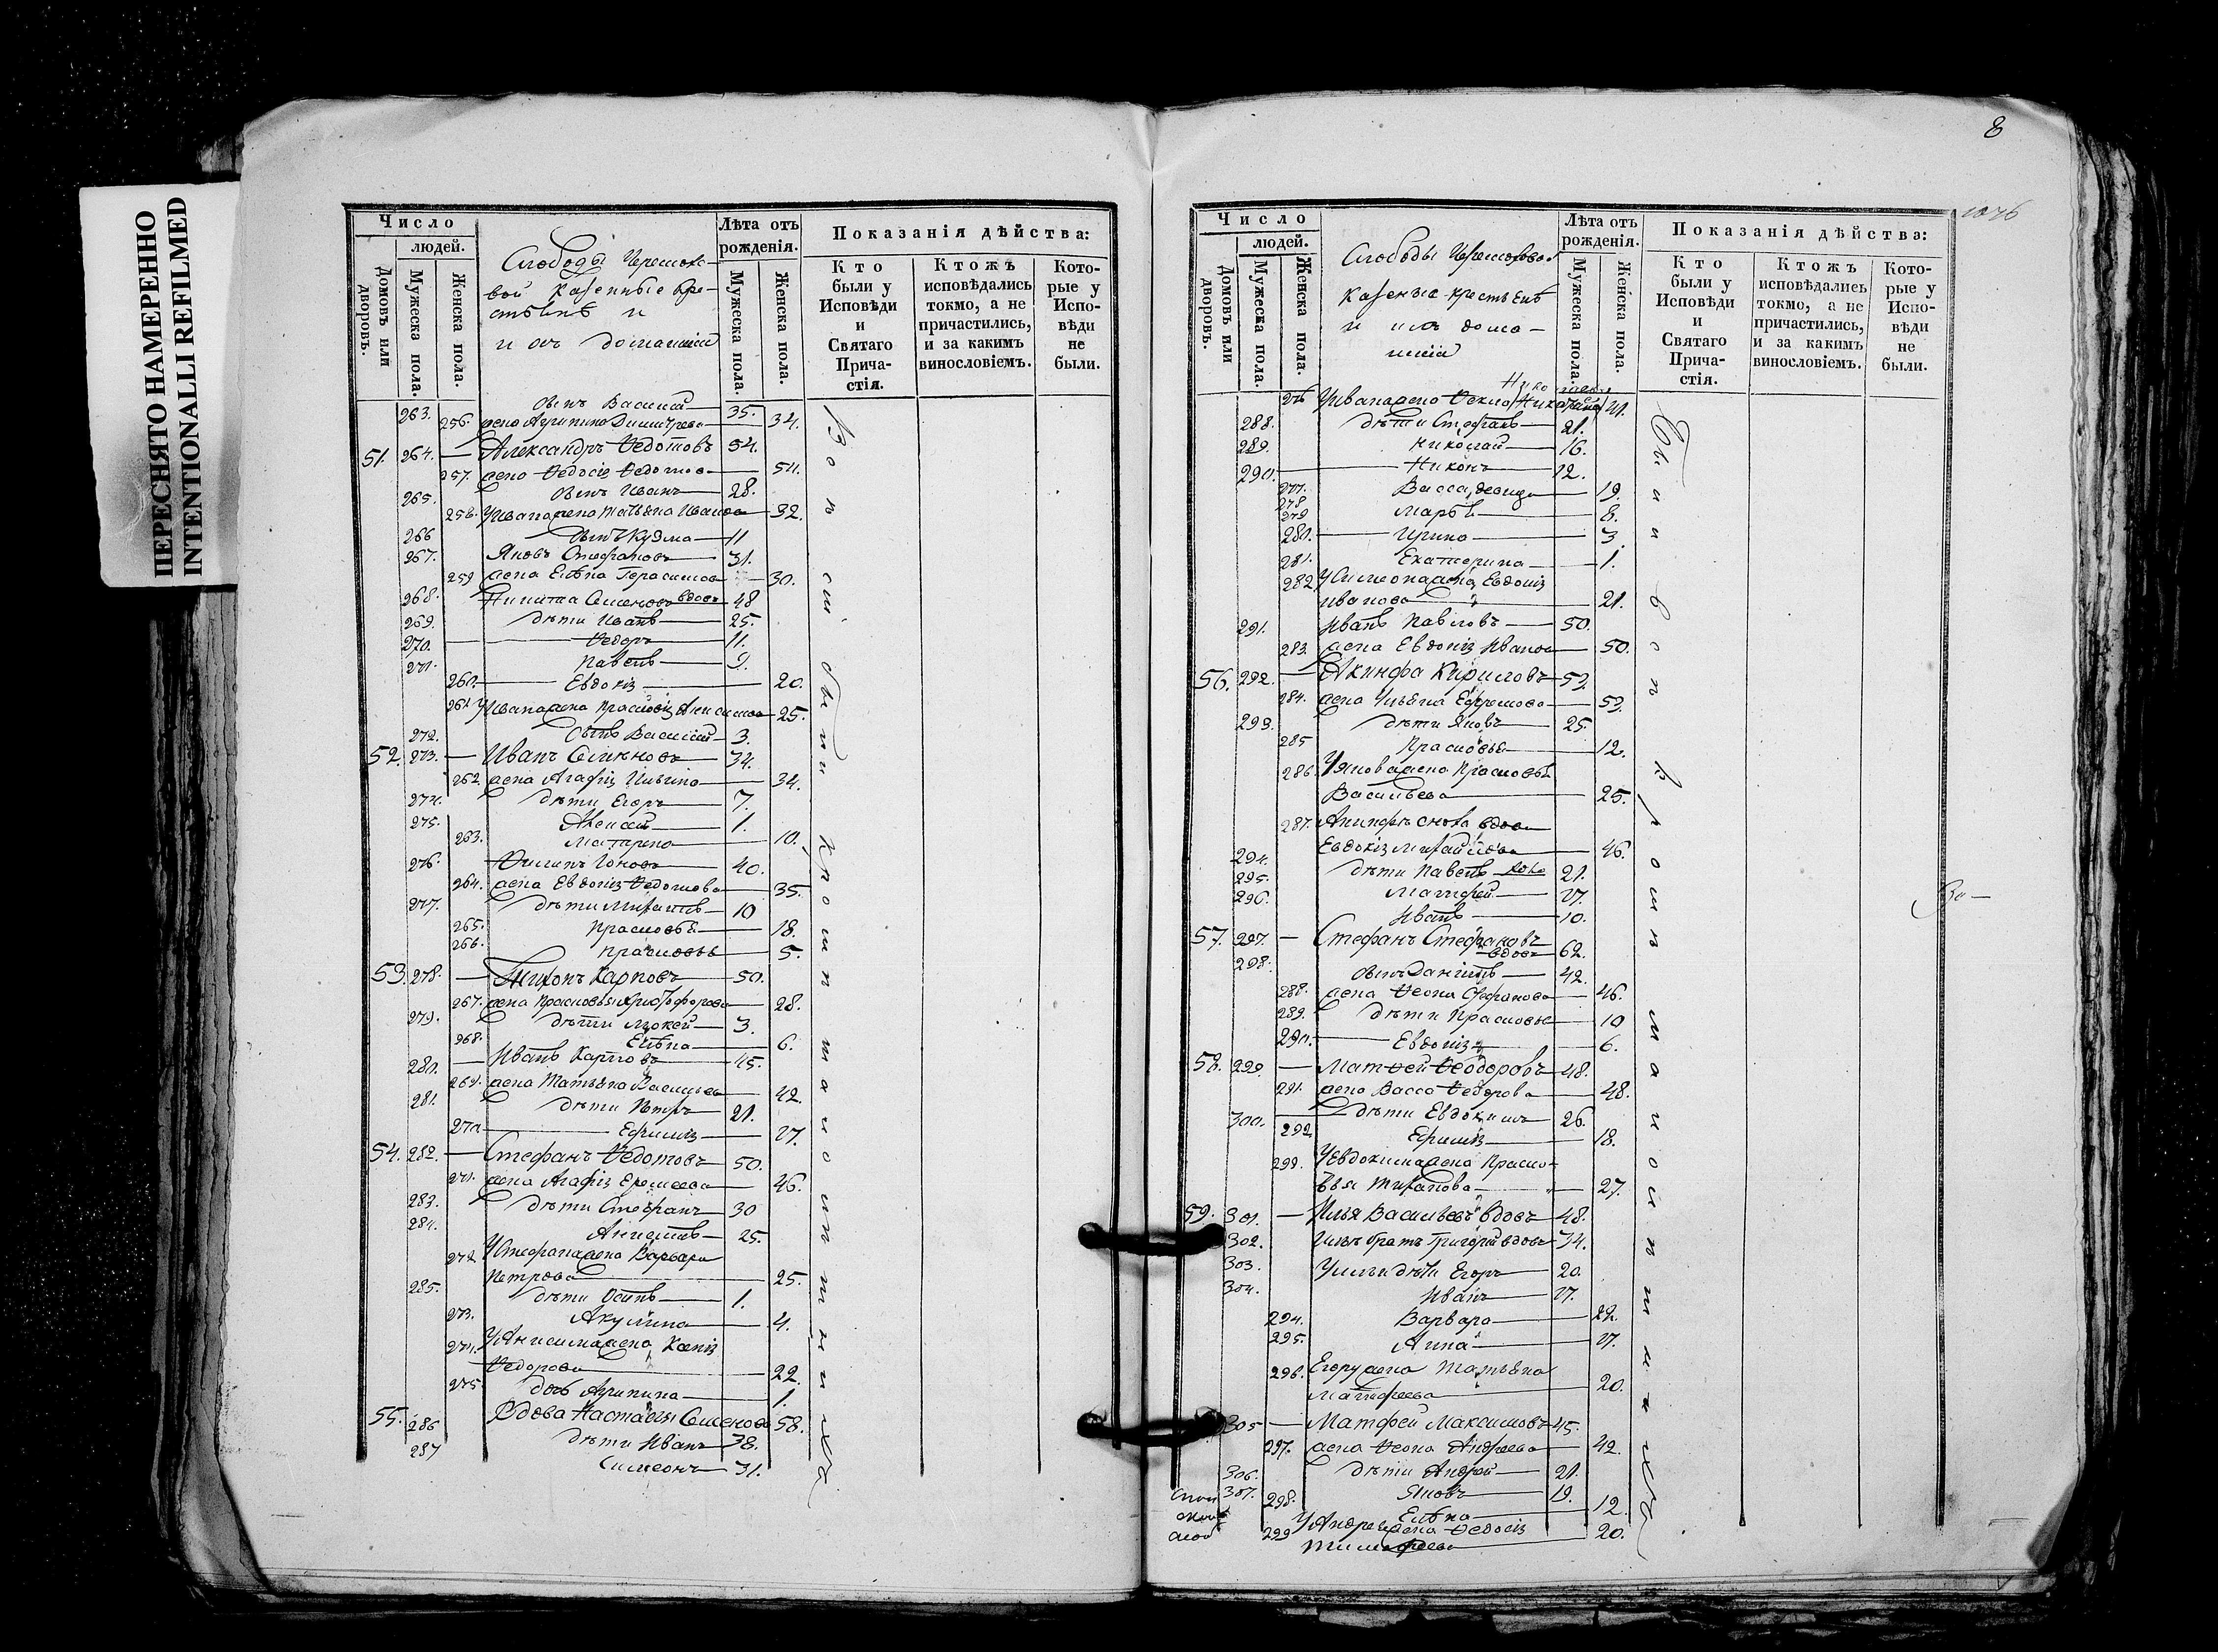 ПЕРЕСНЯТО НАМЕРЕННО
INTENTIONALLI REFILMED
Число
людей.
Домовъ или дворовъ.
Мужеска пола.
Женска пола.
Слободы Черемохо-
вой казенные кре-
стьяне и
и ихъ домашнiи
Лѣта отъ рожденiя.
Мужеска пола.
Женска пола.
Показанiя дѣйства:
Кто были у Исповѣди и Святаго Прича-стiя.
Ктожъ исповѣдались токмо, а не причастились, и за какимъ винословiемъ.
Кото-рые у Испо-вѣди не были.
263. сынъ Василiй 35.
256. жена Агрипина Димитрева 34.
51. 264. Александръ Ѳедотовъ 54.
257. жена Ѳедосiя Ѳедотова 54.
265. сынъ Иванъ 28.
258. У Ивана жена Татьяна Иванова 32.
266 сынъ Кузма 11
267. Яковъ Стефановъ 31.
259 жена Елѣна Герасимова 30.
268. Никита Семеновъ вдовъ 48
269. дѣти Иванъ 25.
270. Ѳедоръ 11.
271. Павелъ 9.
260. Евдокiя 20.
261 У Ивана жена Прасковiя Анисимова 25.
272. сынъ Василiй 3.
52. 273. Иванъ Семеновъ 34.
262. жена Агафiя Ильина 34.
274. дѣти Егоръ 7.
275. Алексѣй 1.
263. Матрена 10.
276. Филипъ Iоновъ 40.
264. жена Евдокiя Ѳедотова 35.
277. дѣти Михаилъ 10
265. Прасковья 18.
266. Прасковья 5.
53. 278. Тихонъ Карповъ 50.
267. жена Прасковья Христофорова 28.
279. дѣти Мокей 3.
268. Елѣна 6.
280. Иванъ Карповъ 45.
269. жена Татьяна Васильева 42.
281. дѣти Петръ 21.
270. Ефимiя 17.
54. 282. Стефанъ Ѳедотовъ 50.
271. жена Агафiя Еремеева 46.
283. дѣти Стефанъ 30
284. Анисимъ 25.
272 У Стефана жена Варвара
Петрова 25.
285. дѣти Осипъ 1.
273. Акулина 4.
274. У Анисима жена Ксенiя
Ѳедорова 22.
275. дочь Агрипина 1.
55. 286 Вдова Настасья Семенова 58.
287 дѣти Иванъ 38.
Симеонъ 31.
8
1046
Число
людей.
Домовъ или дворовъ.
Мужеска пола.
Женска пола.
Слободы Черемоховой
казеные крестьяне
и ихъ дома-
шнiи
Лѣта отъ рожденiя.
Мужеска пола.
Женска пола.
Показанiя дѣйства:
Кто были у Исповѣди и Святаго Прича-стiя.
Ктожъ исповѣдались токмо, а не причастились, и за какимъ винословiемъ.
Кото-рые у Испо-вѣди не были.
276 У Ивана жена Ѳекла 41.
288. дѣти Стефанъ 21.
289. Николай 16.
290. Никонъ 12.
277. Васса, девица 19.
278
279 Марья 8.
280. Ирина 3.
281. Екатерина 1.
282 У Симеона жена Евдокiя
Иванова 21.
291. Иванъ Павловъ 50.
283. жена Евдокiя Иванова 50.
56. 292. Акинфа Кириловъ 53.
284. жена Ульяна Ефремова 53.
293. дѣти Яковъ 25.
285 Прасковья 12.
286. У Якова жена Прасковья
Васильева 25.
287. Акинфы сноха вдова
Евдокiя Михайлова 46.
294. дѣти Павелъ 21.
295. Матфей 17.
296. Иванъ 10.
57. 297. Стефанъ Стефановъ
вдовъ 62.
298. сынъ Данiилъ 42.
288. жена Ѳекла Стефанова 46.
289. дѣти Прасковья 10
290. Евдокiя 6.
58. 299. Матѳей Ѳеодоровъ 48.
291. жена Васса Ѳедорова 48.
300. дѣти Евдокимъ 26.
292. Ефимiя 18.
293. У Евдокима жена Праско-
вья Тиханова 27.
59. 301. Илья Васильевъ вдовъ 48.
302. Ильи братъ Григорiй вдовъ 34.
303. У Ильи дѣти Егоръ 20.
304. Иванъ 17.
294. Варвара 22.
295. Анна 17.
296. Егору жена Татьяна
Матфеева 20.
305 Матфей Максимовъ 45.
297. жена Ѳекла Андреева 42.
306. дѣти Андрей 21.
307. Яковъ 19.
298. Елѣна 12.
299 У Андрея жена Ѳедосiя
Тимофеева 20.